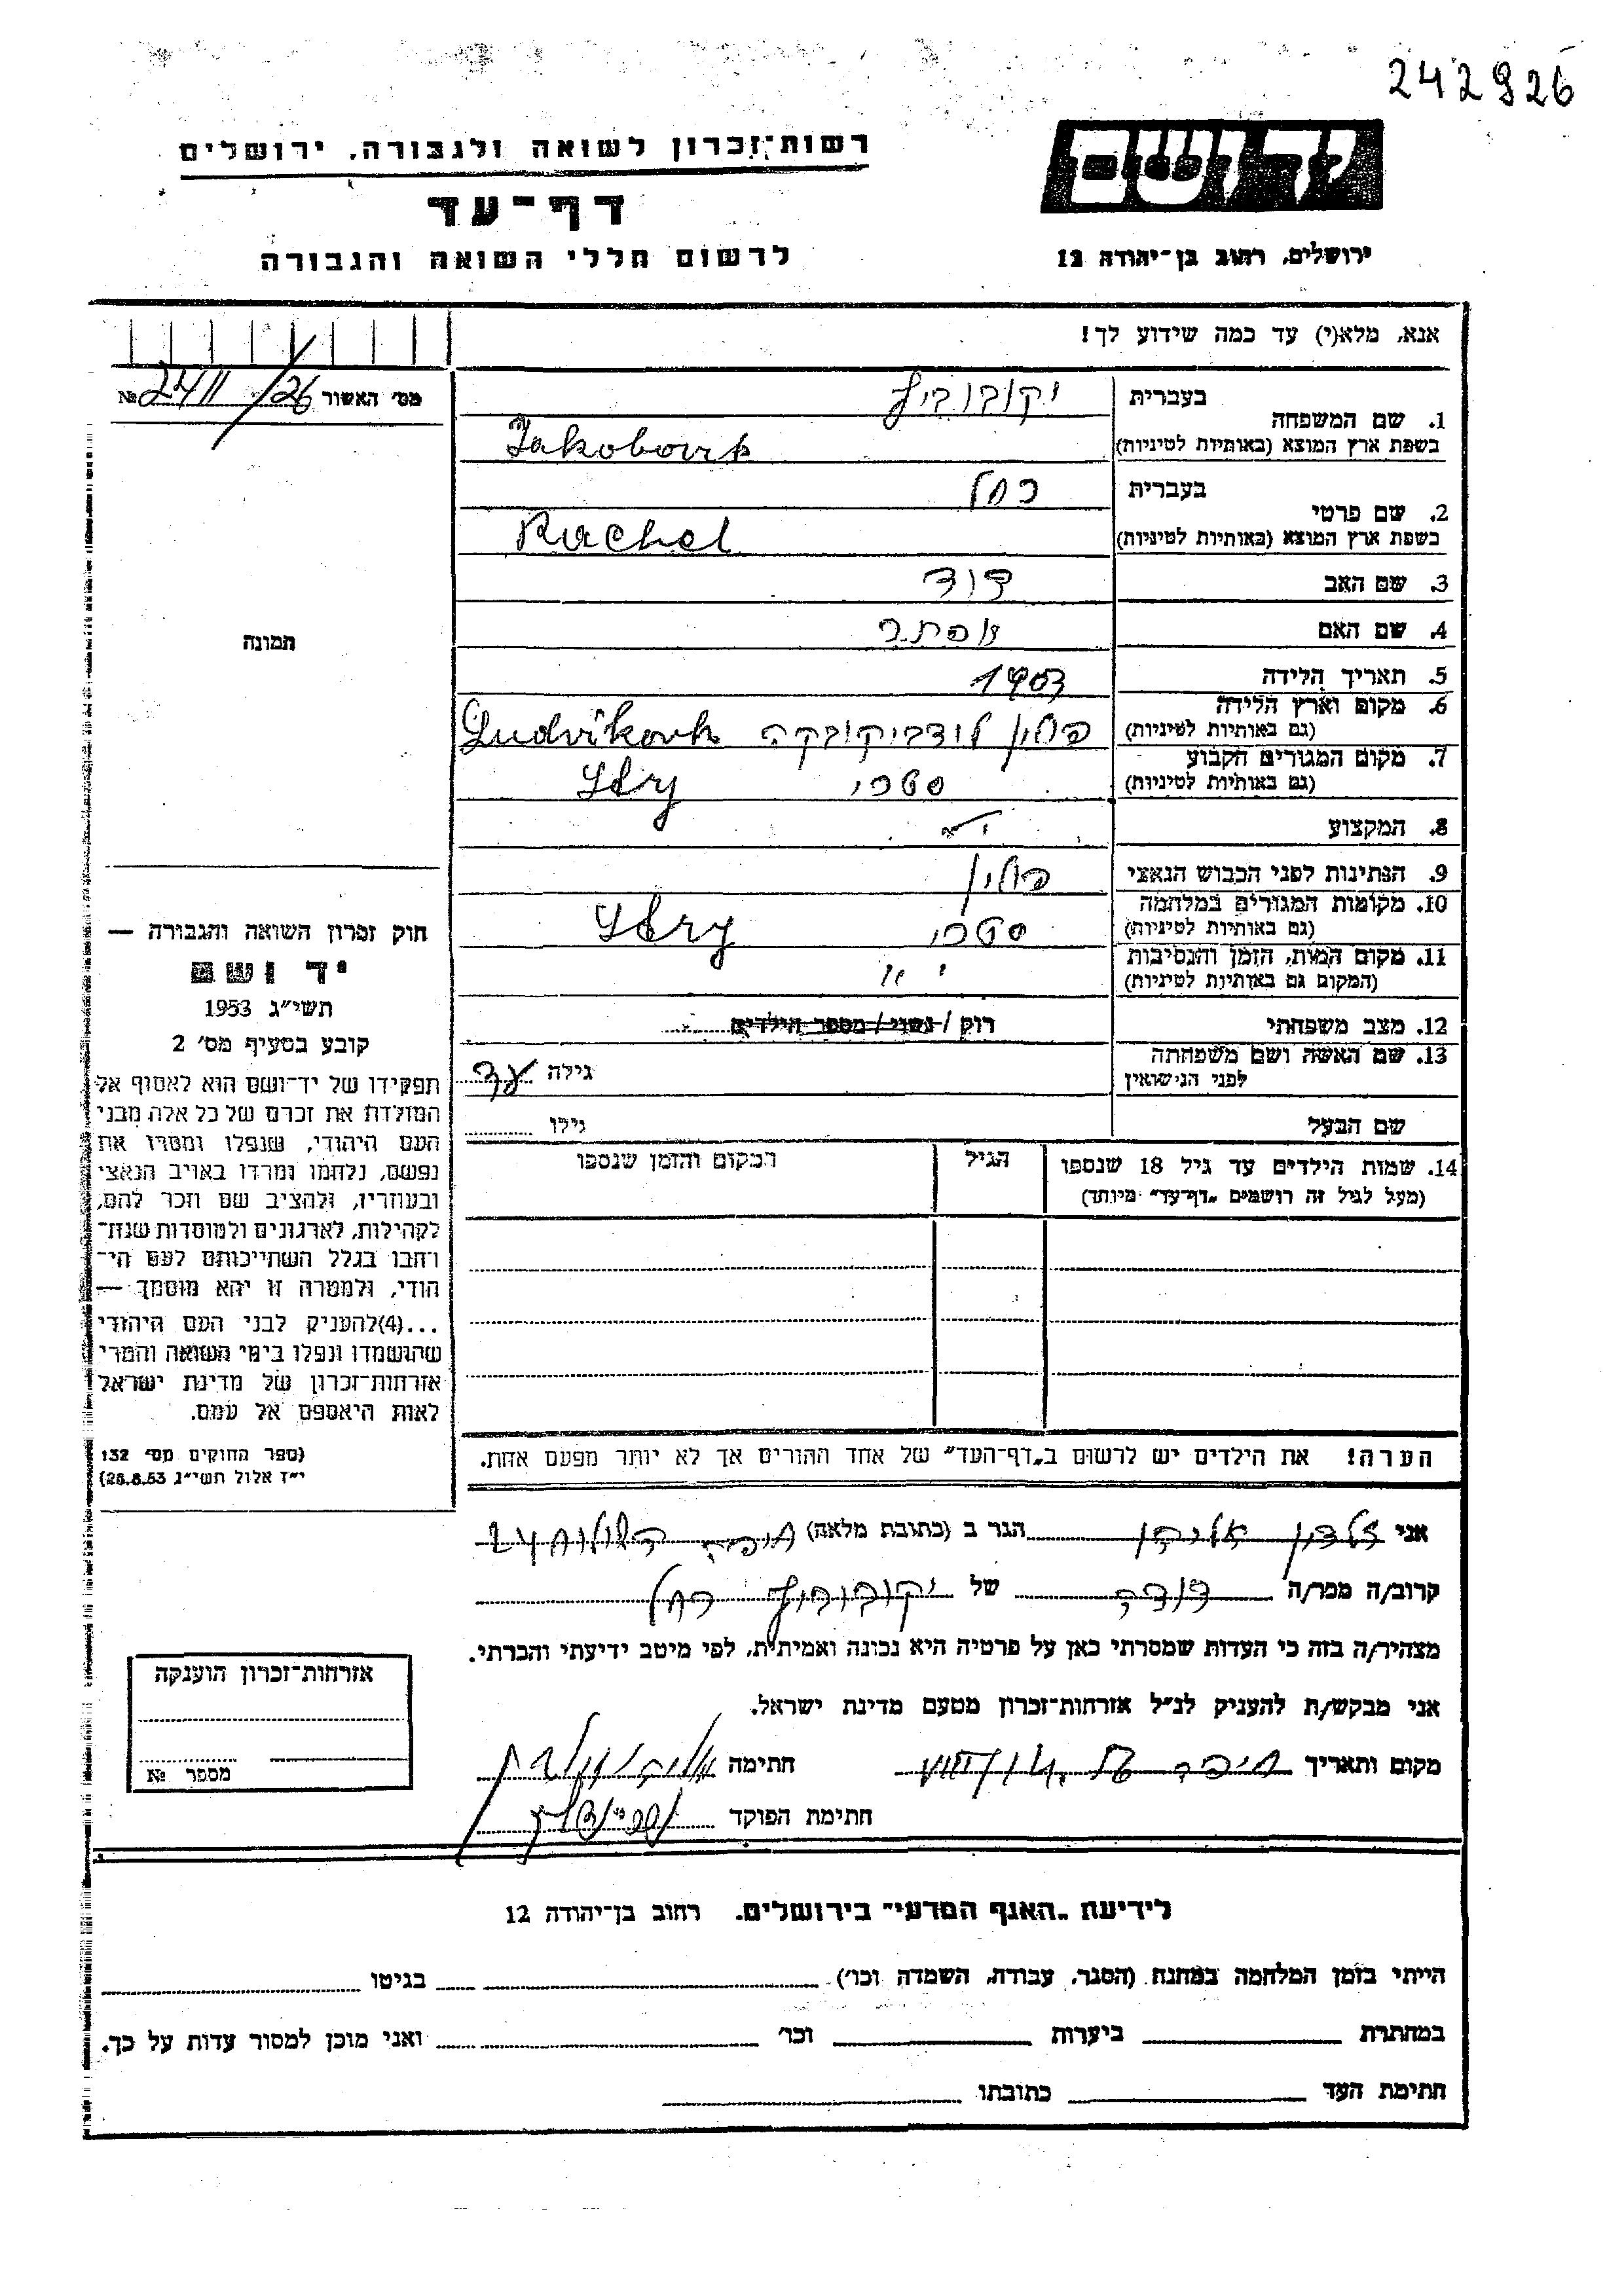 242926
רשות־זכרון לשואה ולגבורה, ירושלים
יד ושם
דף־עד
לרשום חללי השואה והגבורה
ירושלים, רחוב בן־יהודה 12
אנא, מלא(י) עד כמה שידוע לך!
מס׳ האשור № 26
1. שם המשפחה בעברית יקובוביץ
בשפת ארץ המוצא (באותיות לטיניות) Jakobovits
2. שם פרטי בעברית רחל
בשפת ארץ המוצא (באותיות לטיניות) Rachel
3. שם האב דוד
4. שם האם אסתר
5. תאריך הלידה 1903
6. מקום וארץ הלידה (גם באותיות לטיניות) פולין לודביקובקה
7. מקום המגורים הקבוע (גם באותיות לטיניות) סטרי Stry
8. המקצוע
9. הנתינות לפני הכבוש הנאצי פולין
10. מקומות המגורים במלחמה (גם באותיות לטיניות) סטרי Stry
11. מקום המות, הזמן והנסיבות (המקום גם באותיות לטיניות)
12. מצב משפחתי רוק / נשוי / מספר הילדים
13. שם האשה ושם משפחתה לפני הנישואין גילה
שם הבעל גילו
14. שמות הילדים עד גיל 18 שנספו הגיל המקום והזמן שנספו
(מעל לגיל זה רושמים „דף־עד" מיוחד)
הערה! את הילדים יש לרשום ב„דף־העד" של אחד ההורים אך לא יותר מפעם אחת.
תמונה
חוק זכרון השואה והגבורה —
יד ושם
תשי״ג 1953
קובע בסעיף מס׳ 2
תפקידו של יד־ושם הוא לאסוף אל
המולדת את זכרם של כל אלה מבני
העם היהודי, שנפלו ומסרו את
נפשם, נלחמו ומרדו באויב הנאצי
ובעוזריו, ולהציב שם וזכר להם,
לקהילות, לארגונים ולמוסדות שנח־
רבו בגלל השתייכותם לעם הי־
הודי, ולמטרה זו יהא מוסמך —
...(4)להעניק לבני העם היהודי
שהושמדו ונפלו בימי השואה והמרי
אזרחות־זכרון של מדינת ישראל
לאות היאספם אל עמם.
(ספר החוקים מס׳ 132
י״ז אלול תשי״ג 28.8.53)
אני הגר ב (כתובת מלאה) חיפה
קרוב/ה מכר/ה דודה של יקובוביץ רחל
מצהיר/ה בזה כי העדות שמסרתי כאן על פרטיה היא נכונה ואמיתית, לפי מיטב ידיעתי והכרתי.
אני מבקש/ת להעניק לנ״ל אזרחות־זכרון מטעם מדינת ישראל.
מקום ותאריך חיפה חתימה
חתימת הפוקד
אזרחות־זכרון הוענקה
מספר №
לידיעת „האגף המדעי" בירושלים, רחוב בן־יהודה 12
הייתי בזמן המלחמה במחנה (הסגר, עבודה, השמדה וכו׳) בגיטו
במחתרת ביערות וכו׳ ואני מוכן למסור עדות על כך.
חתימת העד כתובתו